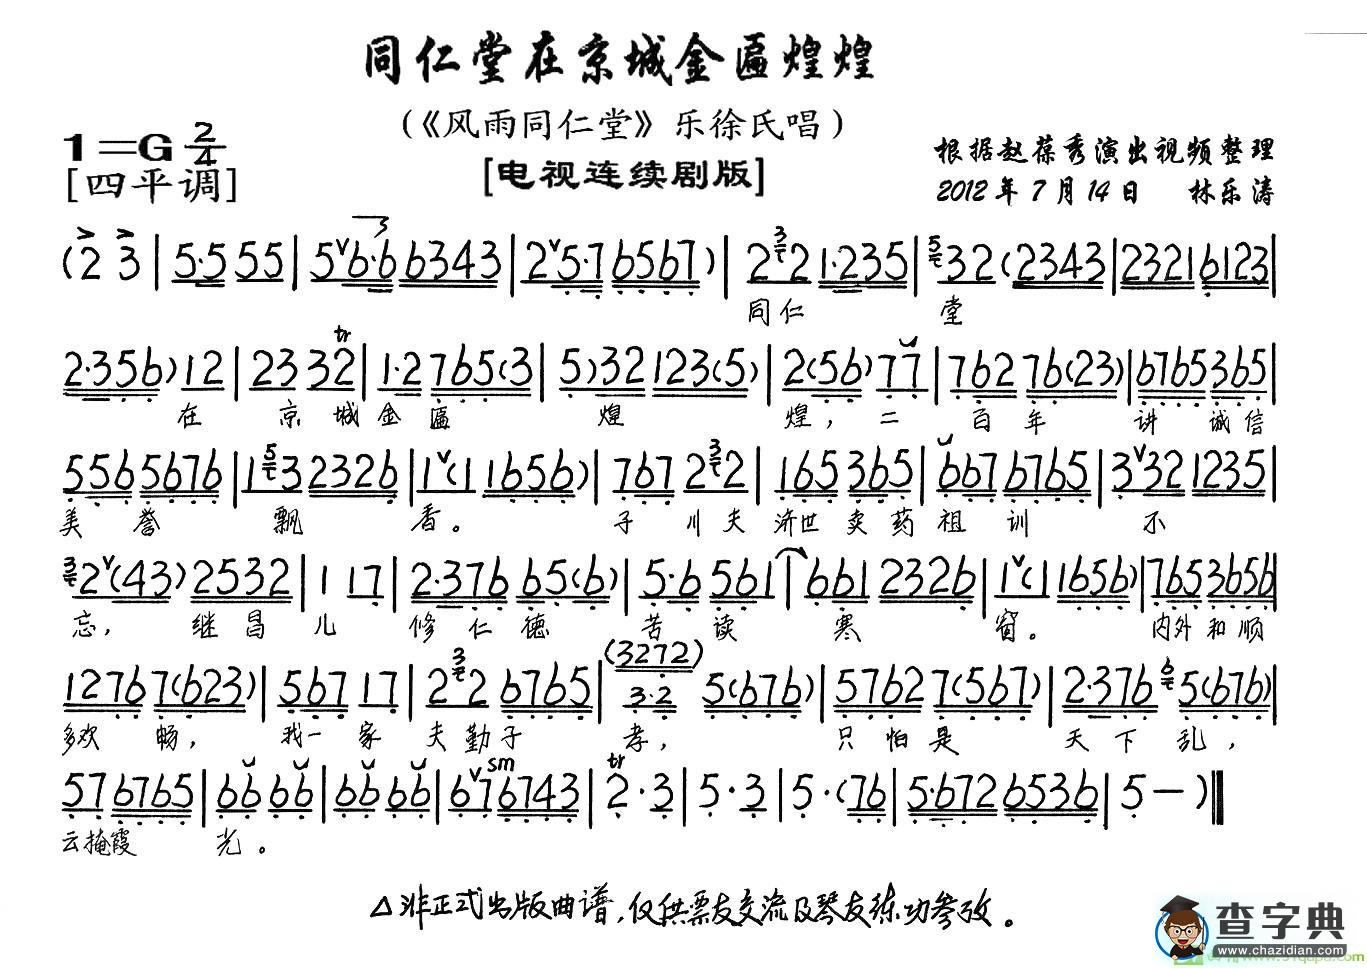 同仁堂在京城金匾煌煌
(《风雨同仁堂》乐徐氏唱)
1=G 2/4
[四平调]
[电视连续剧版]
根据赵葆秀演出视频整理
2012年7月14日 林乐涛
(2 3 | 5·5 55 | 5 6·6 6343 | 2 5·7 6567) | 2 32 1·235 | 5 32 (2343 | 2321 6123 |
同仁 堂
2·356) 12 | 23 32 | 1·2 765(3 | 5)32 123(5) | 2(56) 77 | 762 76(23) | 6765 365 |
在 京城金匾 煌 煌，二 百年 讲 诚信
556 5676 | 1 53 2326 | 1(1 1656) | 767 2 32 | 165 365 | 667 6765 | 3 32 1235 |
美 誉 飘 香。 子川夫 济世卖药 祖训 不
3 2(43) 2532 | 1 17 | 2·376 65(6) | 5·6 561 | 661 2326 | 1(1 1656) | 765 3656 |
忘， 继昌儿 修仁德 苦读 寒 窗。 内外和顺
1276 7(623) | 567 17 | 2 32 6765 | (3272) 3·2 5(676) | 5762 7(567) | 2·376 6 5(676) |
多欢 畅， 我一家 夫勤子 孝， 只怕是 天下乱，
57 6765 | 66 66 | 66 66 | 67 6743 | 2·3 | 5·3 | 5·(76 | 5·672 6536 | 5 —) ‖
tr
sm
云掩霞 光。
△非正式出版曲谱，仅供票友交流及琴友练功参考。
查字典
www.chazidian.com